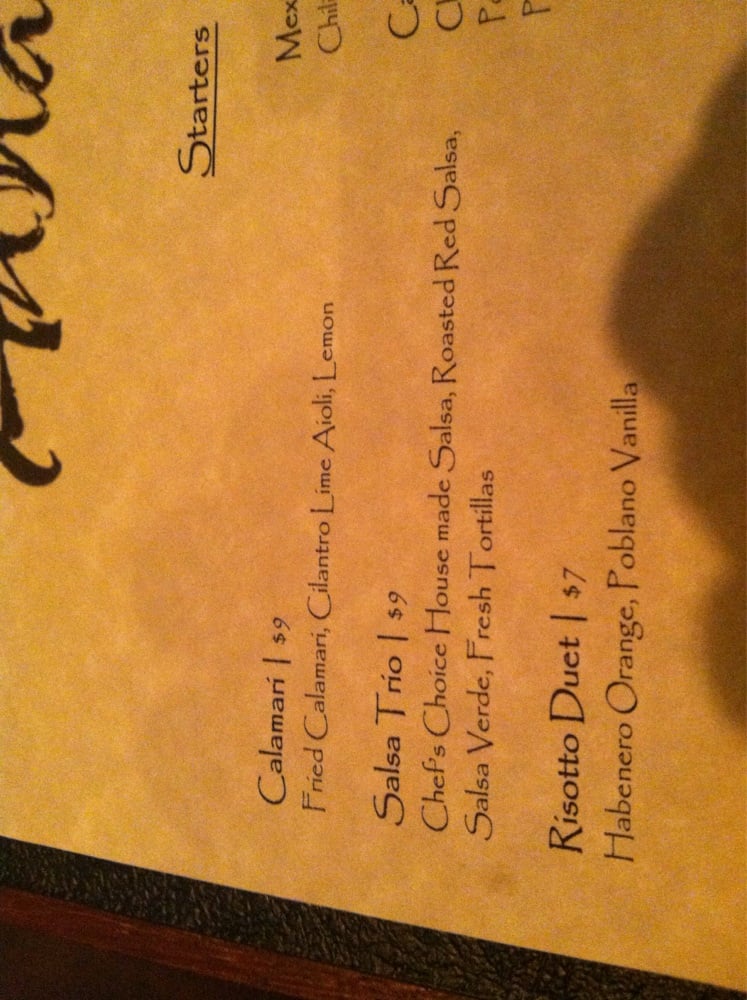 Starters
Calamari | $9
Fried Calamari, Cilantro Lime Aioli, Lemon
Salsa Trio | $9
Chef's Choice House made Salsa, Roasted Red Salsa,
Salsa Verde, Fresh Tortillas
Risotto Duet | $7
Habenero Orange, Poblano Vanilla